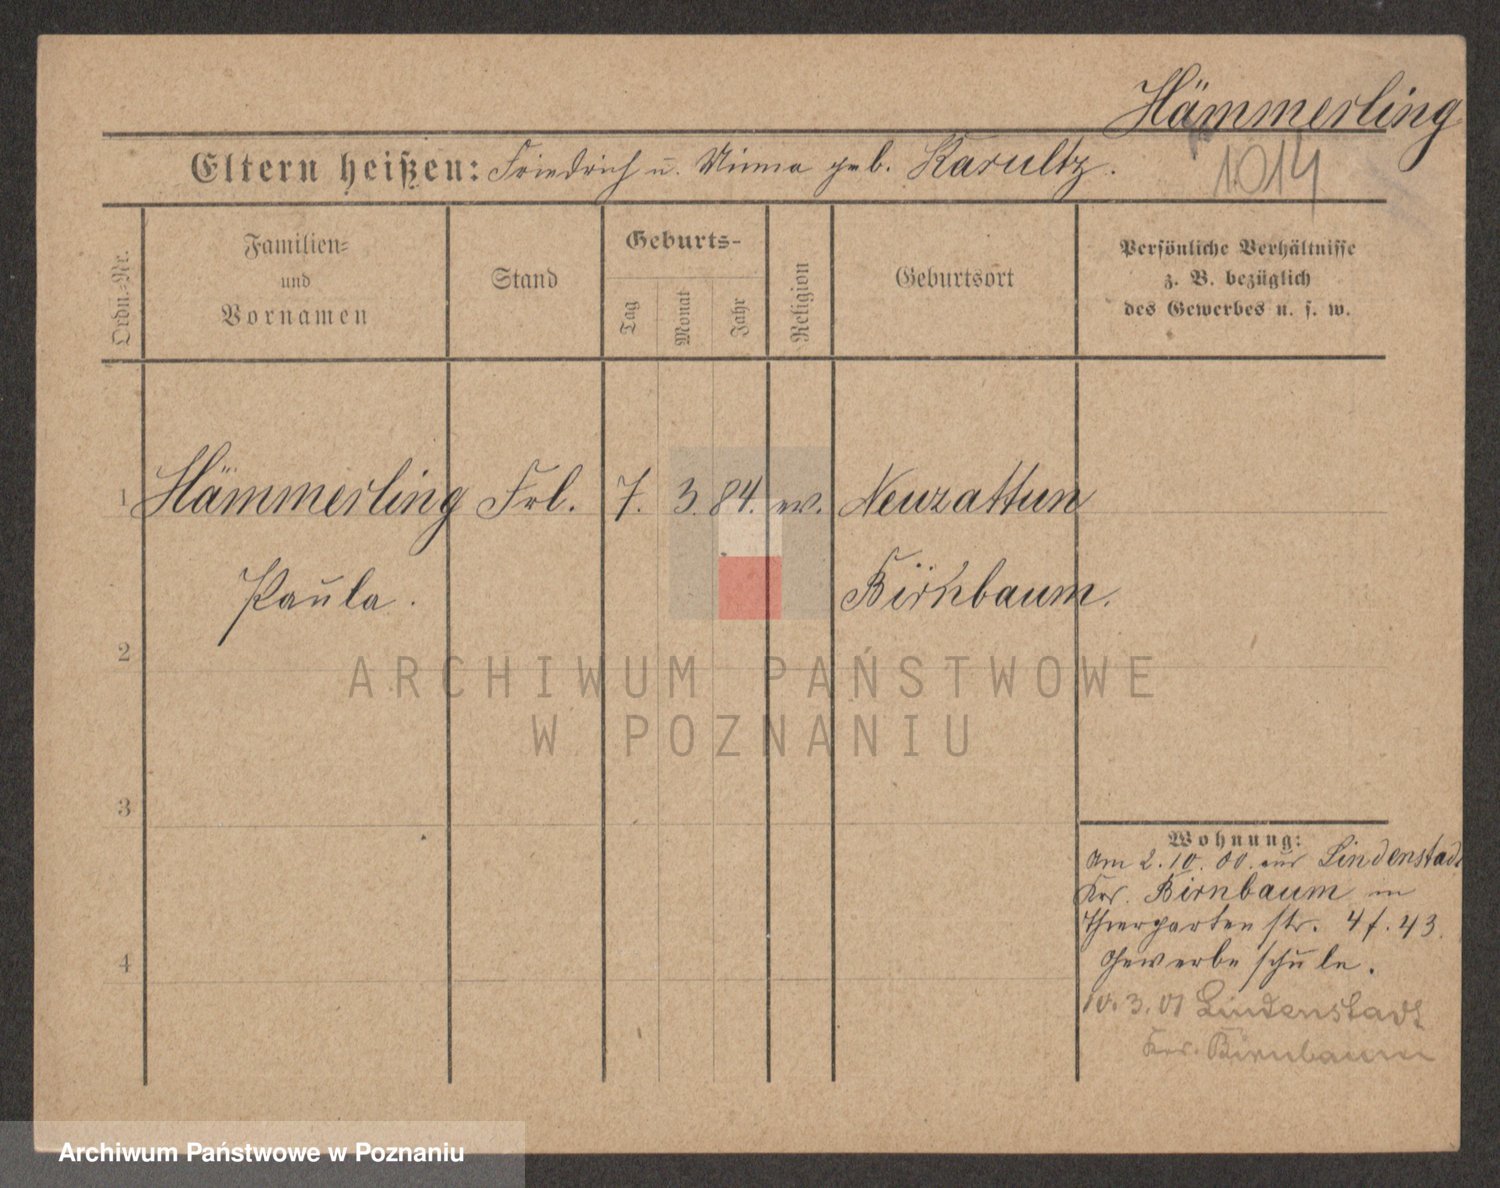 Hämmerling
Eltern heißen: Friedrich u. Minna geb. Karultz.
1014
Ordn.-Nr.
Familien-
und
Vornamen
Stand
Geburts-
Tag
Monat
Jahr
Religion
Geburtsort
Persönliche Verhältnisse
z. B. bezüglich
des Gewerbes u. s. w.
1 Hämmerling Frl. 7. 3. 84. ev. Neuzattun
Paula. Birnbaum.
2
ARCHIWUM PAŃSTWOWE
W POZNANIU
3
4
Wohnung:
Am 2.10.00. aus Lindenstadt
Krs. Birnbaum in
Thiergartenstr. 4 f. 43.
Gewerbeschule.
3.01 Lindenstadt
Krs. Birnbaum
Archiwum Państwowe w Poznaniu